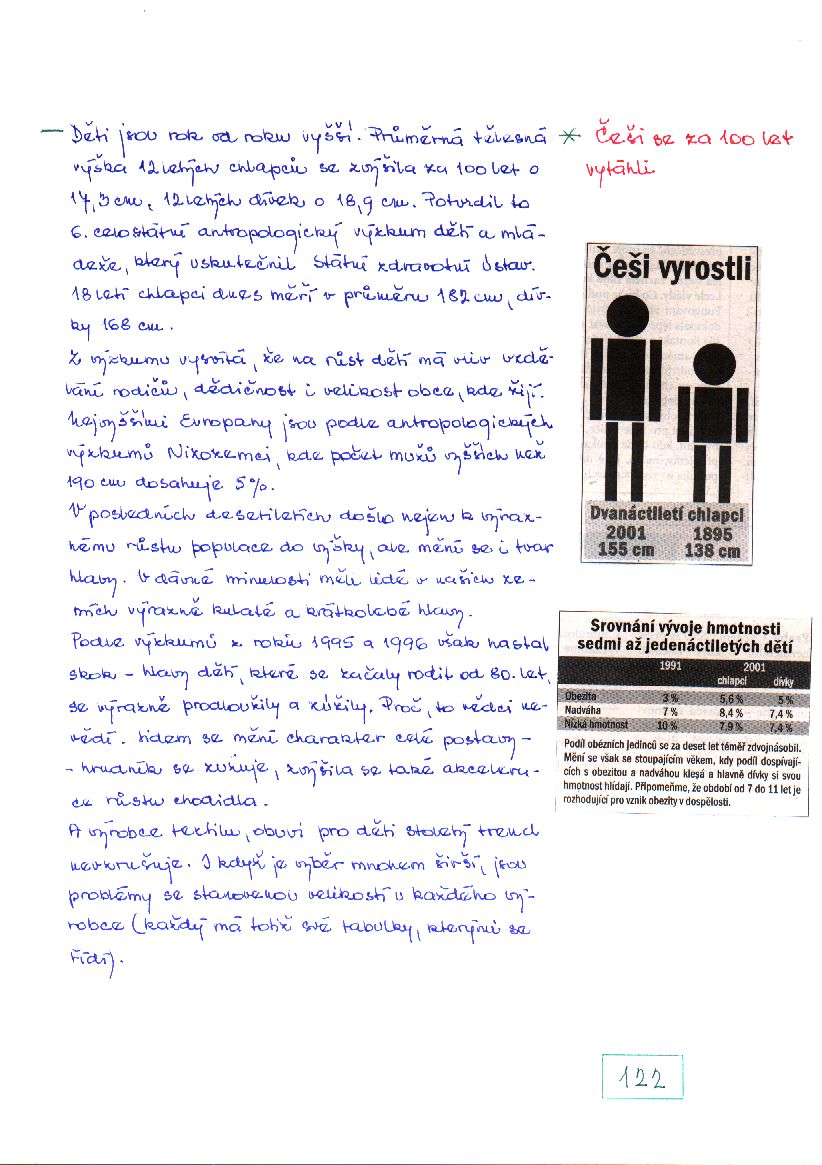 — Děti jsou rok od roku vyšší. Průměrná tělesná
výška 12letých chlapců se zvýšila za 100 let o
17,3 cm, 12letých dívek o 18,9 cm. Potvrdil to
6. celostátní antropologický výzkum dětí a mlá-
deže, který uskutečnil Státní zdravotní ústav.
18letí chlapci dnes měří v průměru 182 cm, dív-
ky 168 cm.
Z výzkumu vysvítá, že na růst dětí má vliv vzdě-
lání rodičů, dědičnost i velikost obce, kde žijí.
Nejvyššími Evropany jsou podle antropologických
výzkumů Nizozemci, kde počet mužů vyšších než
190 cm dosahuje 5%.
V posledních desetiletích došlo nejen k výraz-
nému růstu populace do výšky, ale mění se i tvar
hlavy. V dávné minulosti měli lidé v našich ze-
mích výrazně kulaté a krátkolebé hlavy.
Podle výzkumů z roků 1995 a 1996 však nastal
skok - hlavy dětí, které se začaly rodit od 80. let,
se výrazně prodloužily a zúžily. Proč, to vědci ne-
vědí. Lidem se mění charakter celé postavy -
- hrudník se zužuje, zvýšila se také akcelera-
ce růstu chodidla.
A výrobce textilu, obuvi pro děti stoletý trend
nevzrušuje. I když je výběr mnohem širší, jsou
problémy se stanovenou velikostí u každého vý-
robce (každý má totiž své tabulky, kterými se
řídí).
* Češi se za 100 let
vytáhli.
Češi vyrostli
Dvanáctiletí chlapci
2001 1895
155 cm 138 cm
Srovnání vývoje hmotnosti
sedmi až jedenáctiletých dětí
1991 2001
chlapci dívky
Obezita 3 % 5,6 % 5 %
Nadváha 7 % 8,4 % 7,4 %
Nízká hmotnost 10 % 7,9 % 7,4 %
Podíl obézních jedinců se za deset let téměř zdvojnásobil.
Mění se však se stoupajícím věkem, kdy podíl dospívají-
cích s obezitou a nadváhou klesá a hlavně dívky si svou
hmotnost hlídají. Připomeňme, že období od 7 do 11 let je
rozhodující pro vznik obezity v dospělosti.
122